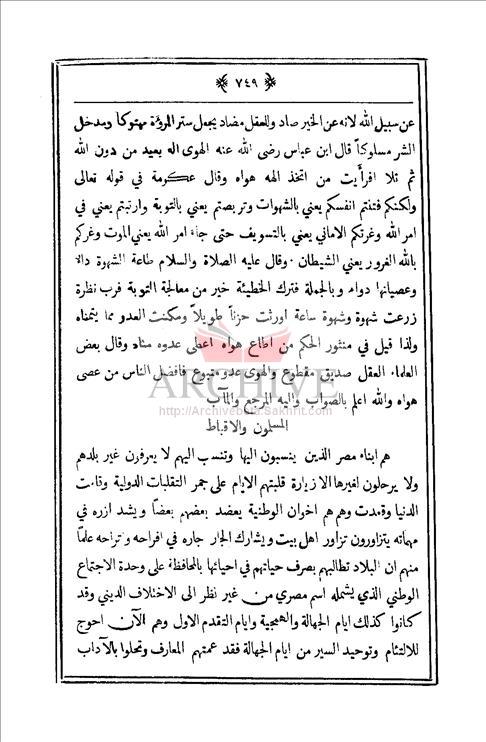 ٧٤٩
عن سبيل الله لانه عن الخير صاد وللعقل مضاد يجعل ستر المرؤة مهتوكا ومدخل
الشر مسلوكاً قال ابن عباس رضى الله عنه الهوى اله يعبد من دون الله
ثم تلا افرأيت من اتخذ الهه هواه وقال عكرمة في قوله تعالى
ولكنكم فتنتم انفسكم يعني بالشهوات وتربصتم يعني بالتوبة وارتبتم يعني في
امر الله وغرتكم الاماني يعني بالتسويف حتى جاء امر الله يعني الموت وغركم
بالله الغرور يعني الشيطان . وقال عليه الصلاة والسلام طاعة الشهوة داء
وعصيانها دواء وبالجملة فترك الخطيئة خير من معالجة التوبة فرب نظرة
زرعت شهوة وشهوة ساعة اورثت حزناً طويلاً ومكنت العدو مما يتمناه
ولذا قيل في منثور الحكم من اطاع هواه اعطى عدوه مناه وقال بعض
العلماء العقل صديق مقطوع والهوى عدو متبوع فافضل الناس من عصى
هواه والله اعلم بالصواب واليه المرجع والمآب
ARCHIVE
http://Archivebeta.Sakhrit.com
المسلمون والاقباط
هم ابناء مصر الذين ينسبون اليها وتنسب اليهم لا يعرفون غير بلدهم
ولا يرحلون لغيرها الا زيارة قلبتهم الايام على جمر التقلبات الدولية وقامت
الدنيا وقعدت وهم هم اخوان الوطنية يعضد بعضهم بعضاً ويشد ازره في
مهماته يتزاورون تزاور اهل بيت ويشارك الجار جاره في افراحه واتراحه علماً
منهم ان البلاد تطالبهم بصرف حياتهم في احيائها بالمحافظة على وحدة الاجتماع
الوطني الذي يشمله اسم مصري من غير نظر الى الاختلاف الديني وقد
كانوا كذلك ايام الجهالة والهمجية وايام التقدم الاول وهم الآن احوج
للالتئام وتوحيد السير من ايام الجهالة فقد عمتهم المعارف وتحلوا بالآداب